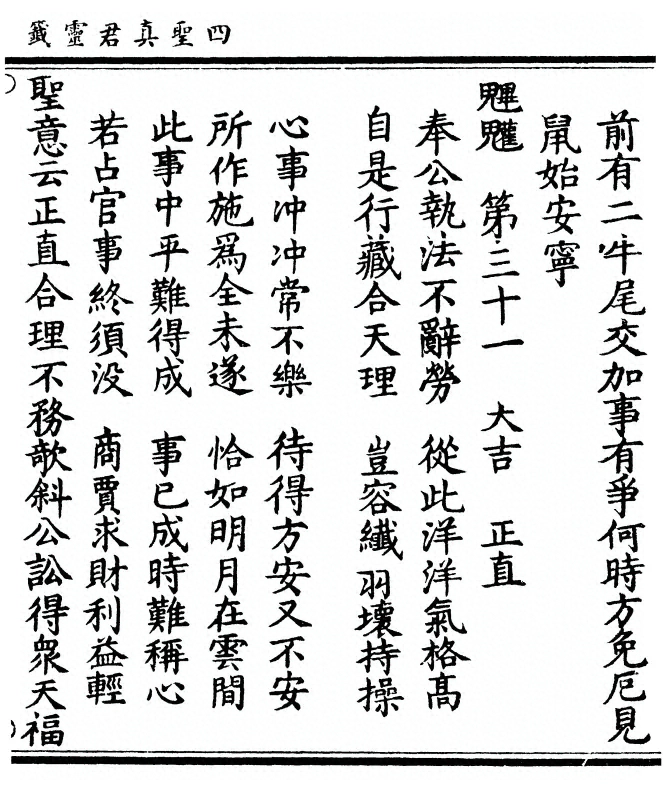 四聖真君靈籤
前有二牛尾交加事有爭何時方免厄見
鼠始安寧
魓魋 第三十一 大吉 正直
奉公執法不辭勞 從此洋洋氣格高
自是行藏合天理 豈容纖羽壞持操
心事冲冲常不樂 待得方安又不安
所作施爲全未遂 恰如明月在雲間
此事中平難得成 事已成時難稱心
若占官事終須没 商賈求財利益輕
聖意云正直合理不務欹斜公訟得衆天福